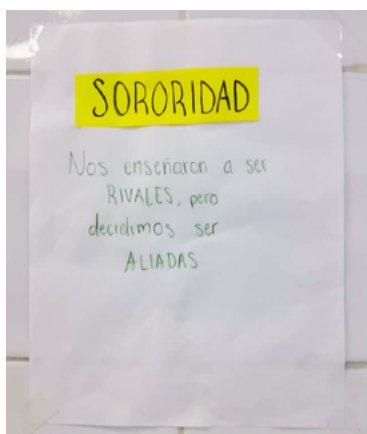 SORORIDAD
Nos enseñaron a ser
RIVALES, pero
decidimos ser
ALIADAS